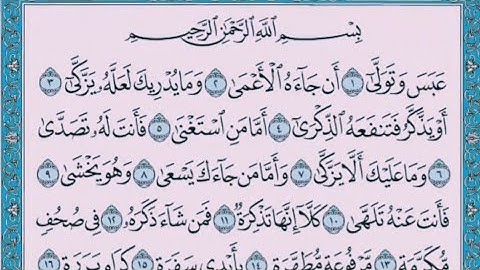 بِسْمِ ٱللَّهِ ٱلرَّحْمَٰنِ ٱلرَّحِيمِ
عَبَسَ وَتَوَلَّىٰٓ ١ أَن جَآءَهُ ٱلْأَعْمَىٰ ٢ وَمَا يُدْرِيكَ لَعَلَّهُۥ يَزَّكَّىٰٓ ٣
أَوْ يَذَّكَّرُ فَتَنفَعَهُ ٱلذِّكْرَىٰٓ ٤ أَمَّا مَنِ ٱسْتَغْنَىٰ ٥ فَأَنتَ لَهُۥ تَصَدَّىٰ
٦ وَمَا عَلَيْكَ أَلَّا يَزَّكَّىٰ ٧ وَأَمَّا مَن جَآءَكَ يَسْعَىٰ ٨ وَهُوَ يَخْشَىٰ ٩
فَأَنتَ عَنْهُ تَلَهَّىٰ ١٠ كَلَّآ إِنَّهَا تَذْكِرَةٌ ١١ فَمَن شَآءَ ذَكَرَهُۥ ١٢ فِى صُحُفٍ
مُّكَرَّمَةٍ ١٣ مَّرْفُوعَةٍ مُّطَهَّرَةٍۭ ١٤ بِأَيْدِى سَفَرَةٍ ١٥ كِرَامٍۭ بَرَرَةٍ ١٦